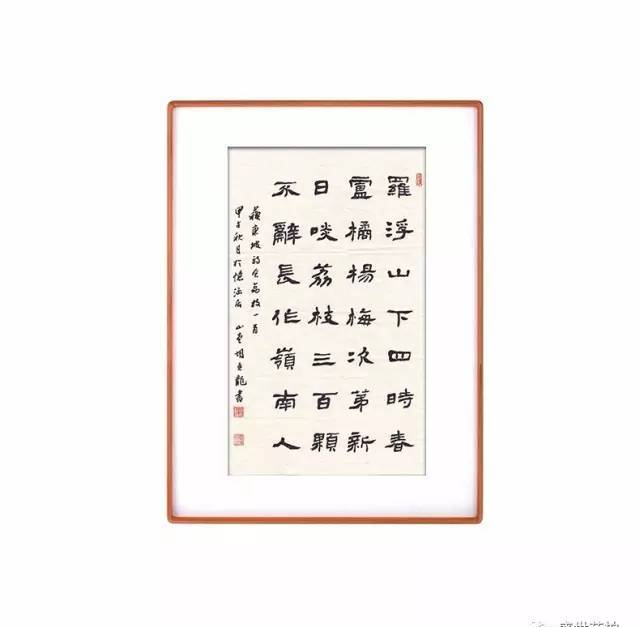 羅浮山下四時春
盧橘楊梅次第新
日啖荔枝三百顆
不辭長作嶺南人
蘇東坡詩食荔枝一首
甲午秋月於憶涵居 山
書